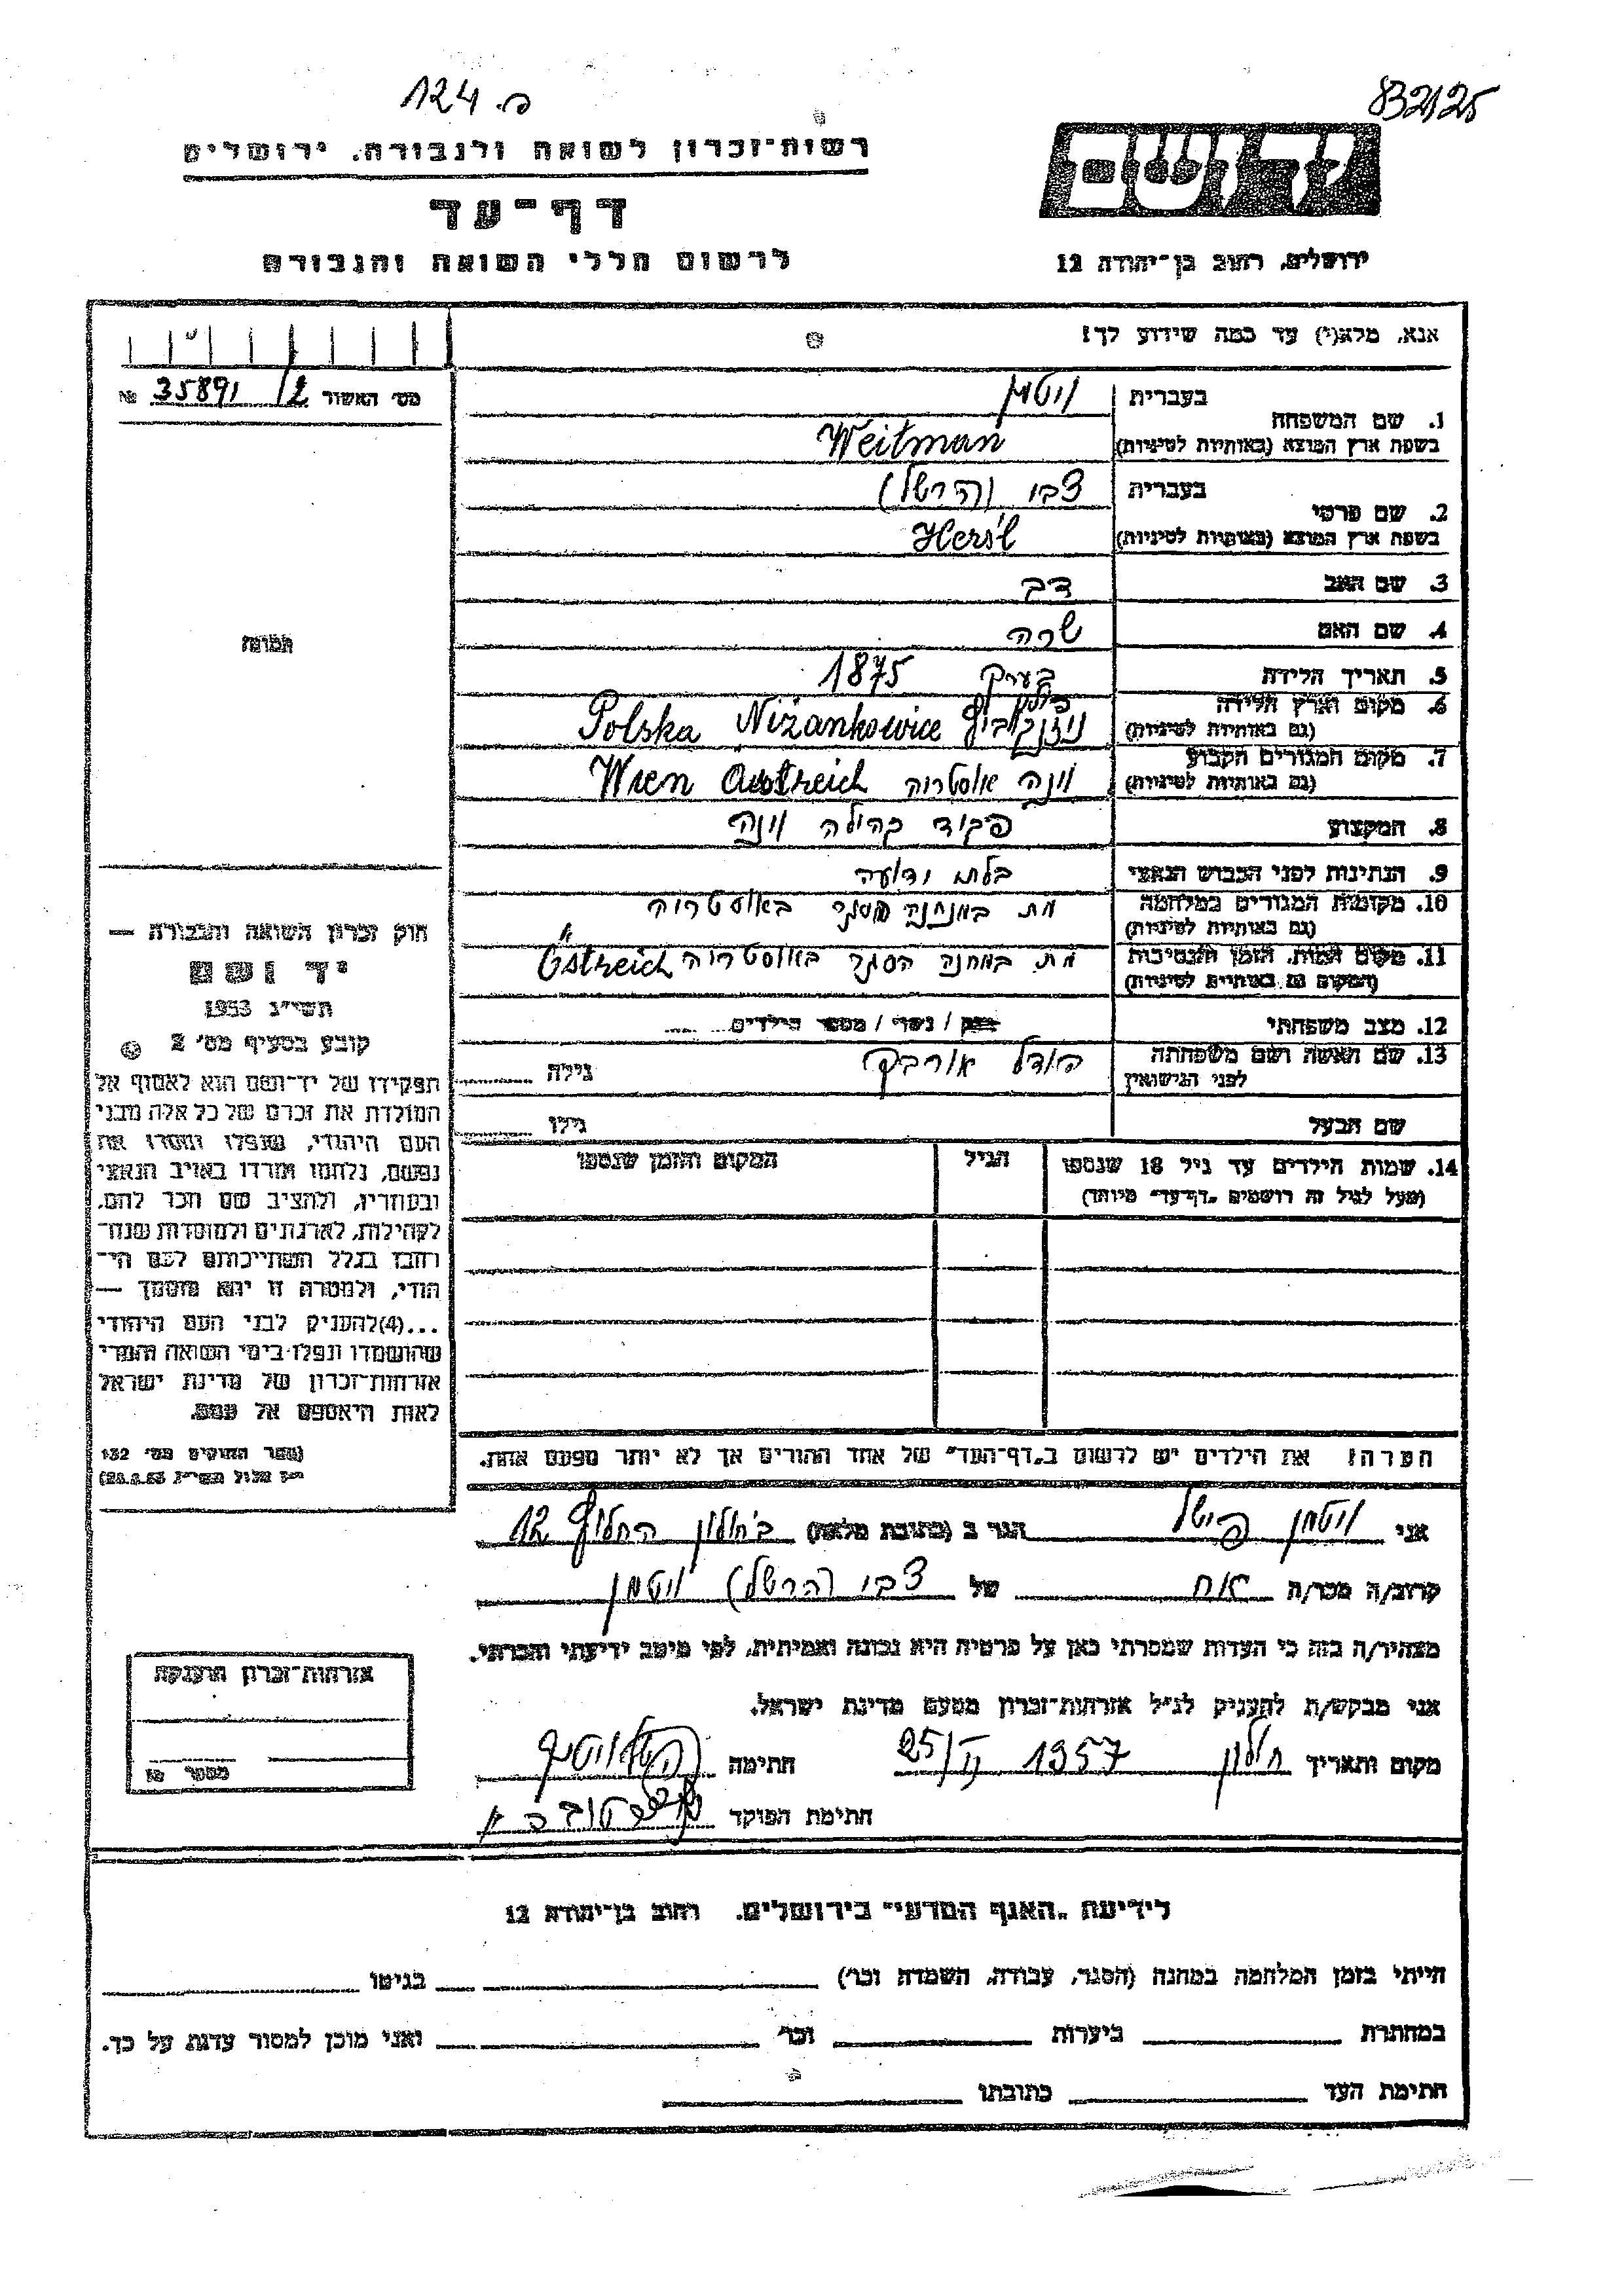 124 .פ
832/25
רשות־זכרון לשואה ולגבורה, ירושלים
יד ושם
דף־עד
לרשום חללי השואה והגבורה
ירושלים, רחוב בן־יהודה 12
אנא, מלא(י) עד כמה שידוע לך!
מס׳ האשור № 35891/2
1. שם המשפחה
בעברית ויטמן
בשפת ארץ המוצא (באותיות לטיניות) Weitman
2. שם פרטי
בעברית צבי (הרשל)
בשפת ארץ המוצא (באותיות לטיניות) Herśl
3. שם האב דב
4. שם האם שרה
5. תאריך הלידה בערך 1875
6. מקום וארץ הלידה
(גם באותיות לטיניות) פולין Polska Niżankowice
7. מקום המגורים הקבוע
(גם באותיות לטיניות) וינה אוסטריה Wien Austreich
8. המקצוע פקיד קהילה וינה
9. הנתינות לפני הכבוש הנאצי בלתי ידועה
10. מקומות המגורים במלחמה
(גם באותיות לטיניות) מת במחנה הסגר באוסטריה
11. מקום המות, הזמן והנסיבות
(המקום גם באותיות לטיניות) מת במחנה הסגר באוסטריה Östreich
12. מצב משפחתי רווק / נשוי / מספר הילדים
13. שם האשה ושם משפחתה
לפני הנישואין אורבך גילה
שם הבעל גילו
14. שמות הילדים עד גיל 18 שנספו הגיל המקום והזמן שנספו
(מעל לגיל זה רושמים „דף־עד״ מיוחד)
הערה! את הילדים יש לרשום ב„דף־העד״ של אחד ההורים אך לא יותר מפעם אחת.
תמונה
חוק זכרון השואה והגבורה —
יד ושם
תשי״ג 1953
קובע בסעיף מס׳ 2
תפקידו של יד־ושם הוא לאסוף אל
המולדת את זכרם של כל אלה מבני
העם היהודי, שנפלו ומסרו את
נפשם, נלחמו ומרדו באויב הנאצי
ובעוזריו, ולהציב שם וזכר להם,
לקהילות, לארגונים ולמוסדות שנח־
רבו בגלל השתייכותם לעם הי־
הודי, ולמטרה זו יהא מוסמך —
...(4)להעניק לבני העם היהודי
שהושמדו ונפלו בימי השואה והמרי
אזרחות־זכרון של מדינת ישראל
לאות היאספם אל עמם.
(ספר החוקים מס׳ 132
י״ז אלול תשי״ג 28.8.53)
אני ויטמן הגר ב (כתובת מלאה) בחולון 12
קרוב/ה מכר/ה אח של צבי (הרשל) ויטמן
מצהיר/ה בזה כי העדות שמסרתי כאן על פרטיה היא נכונה ואמיתית, לפי מיטב ידיעתי והכרתי.
אני מבקש/ת להעניק לנ״ל אזרחות־זכרון מטעם מדינת ישראל.
מקום ותאריך חולון 25/VI 1957 חתימה
חתימת הפוקד
אזרחות־זכרון הוענקה
מספר
לידיעת „האגף המדעי״ בירושלים, רחוב בן־יהודה 12
הייתי בזמן המלחמה במחנה (הסגר, עבודה, השמדה וכו׳) בגיטו
במחתרת ביערות וכו׳ ואני מוכן למסור עדות על כך.
חתימת העד כתובתו